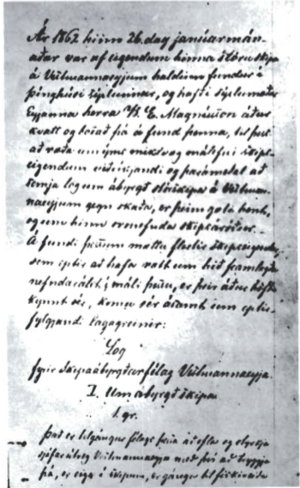 Ár 1862 hinn 26. dag janúarmán-
aðar var af eigendum hinna stóru skipa
á Vestmannaeyjum haldinn fundur í
þinghúsi sýslunnar, og hafði sýslumaður
Eyjanna herra B. E. Magnússon áður
kvatt og boðað þá á fund þenna, til þess
að ræða um ýms mikilvæg málefni skips-
eigendum viðvíkjandi og þarámeðal að
semja lög um ábyrgð stórskipa á Vestman-
naeyjum gegn skaða, er þeim gæti hent,
og um hinn svonefnda skipsáróður.
Á fundi þessum mættu flestir skipseigendur,
sem eptir að hafa rætt um hið framlagða
nefndarálit í máli þessu, er þeir áður höfðu
kynnt sér, komu sér ásamt um eptir-
fylgjandi lagagreinir:
Lög
fyrir Skipaábyrgðarfélag Vestmannaeyja.
I. Um ábyrgð skipa
1. gr.
Það er tilgangur félags þessa að efla og
sjáfarútveg Vestmannaeyja með því að tryggja
þá, er eiga í skipum, er gánga til fiskiveiða